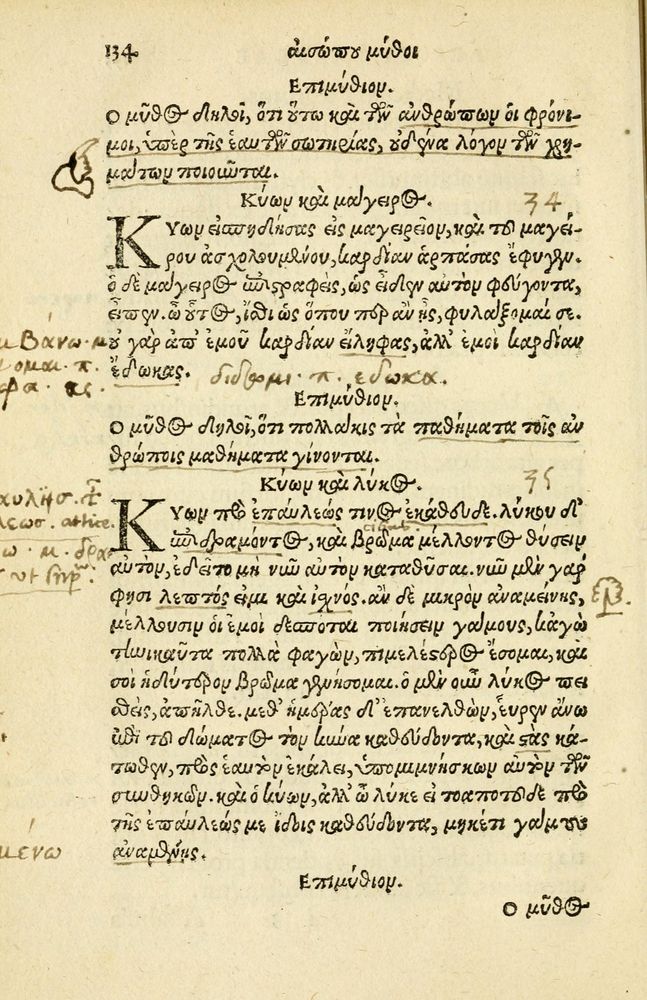 134 αἰσώπου μῦθοι
Ἐπιμύθιον.
Ὁ μῦθος δηλοῖ, ὅτι οὕτω καὶ τῶν ἀνθρώπων οἱ φρόνι-
μοι, ὑπὲρ τῆς ἑαυτῶν σωτηρίας, οὐδένα λόγον τῶν χρη-
μάτων ποιοῦνται.
Κύων καὶ μάγειρος. 34
Κύων εἰσπηδήσας εἰς μαγειρεῖον, καὶ τοῦ μαγεί-
ρου ἀσχολουμένου, καρδίαν ἁρπάσας ἔφυγεν.
ὁ δὲ μάγειρος ἐπιστραφεὶς, ὡς εἶδεν αὐτὸν φεύγοντα,
εἶπεν. ὦ οὗτος, ἴσθι ὡς ὅπου περ ἂν ᾖς, φυλάξομαί σε.
οὐ γὰρ ἀπ' ἐμοῦ καρδίαν εἴληφας, ἀλλ' ἐμοὶ καρδίαν
ἔδωκας. δίδωμι . π . ἔδωκα.
Ἐπιμύθιον.
Ὁ μῦθος δηλοῖ, ὅτι πολλάκις τὰ παθήματα τοῖς ἀν
θρώποις μαθήματα γίνονται.
Κύων καὶ λύκος. 35
Κύων πρὸ ἐπαύλεώς τινος ἐκάθευδε. λύκου δ'
ἐπιδραμόντος, καὶ βρῶμα μέλλοντος θύσειν
αὐτὸν, ἐδεῖτο μὴ νῦν αὐτὸν καταθῦσαι. νῦν μὲν γάρ
φησι λεπτός εἰμι καὶ ἰσχνός. ἂν δὲ μικρὸν ἀναμείνης,
μέλλουσιν οἱ ἐμοὶ δεσπόται ποιήσειν γάμους, κἀγὼ
τηνικαῦτα πολλὰ φαγὼν, πιμελέστερος ἔσομαι, καὶ
σοὶ ἡδύτερον βρῶμα γενήσομαι. ὁ μὲν οὖν λύκος πει
σθεὶς, ἀπῆλθε. μεθ' ἡμέρας δ' ἐπανελθὼν, εὗρεν ἄνω
ἐπὶ τοῦ δώματος τὸν κύνα καθεύδοντα, καὶ στὰς κά-
τωθεν, πρὸς ἑαυτὸν ἐκάλει, ὑπομιμνήσκων αὐτὸν τῶν
συνθηκῶν. καὶ ὁ κύων, ἀλλ' ὦ λύκε εἰ τοαποτοῦδε πρὸ
τῆς ἐπαύλεώς με ἴδοις καθεύδοντα, μηκέτι γάμους
ἀναμένης.
Ἐπιμύθιον.
Ὁ μῦθος